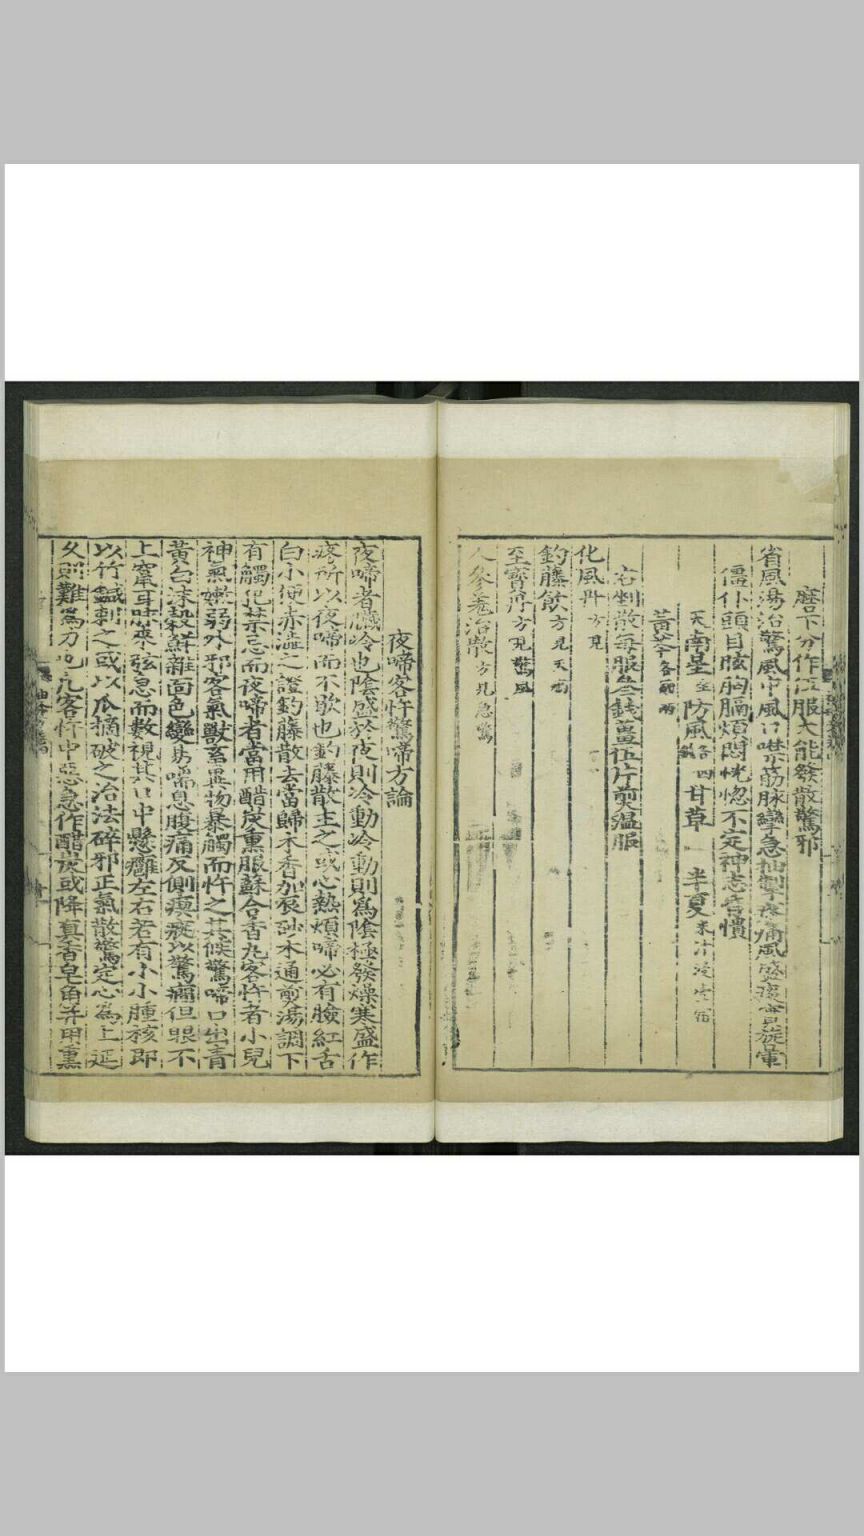 磨下分作江服大能發散驚邪
省風湯治驚風中風口噤筋脉攣急抽掣疼痛風盛痰實旋暈
僵仆頭目眩胸膈煩悶恍惚不定神志昏憒
天南星 防風 各四 甘草 半夏
黃芩 各兩
右剉散每服叁錢薑伍片煎溫服
化風丹 方見
釣藤飲 方見天
至寶 方見驚風
人參羗活散 方見急驚
夜啼客忤驚啼方論
夜啼者臟冷也陰盛於夜則冷動冷動則爲陰極發燥寒盛作
疼所以夜啼而不歇也釣藤散主之或心熱煩啼必有臉紅舌
白小便赤澁之證釣藤散去當歸木香加辰砂木通煎湯調下
有觸犯禁忌而夜啼者當用醋炭熏服蘇合香丸客忤者小兒
神氣嫩弱外邪客氣獸畜異物暴觸而忤之其候驚啼口出青
黃白沫穀鮮雜面色變易喘息腹痛反側瘈瘲以驚癇但眼不
上竄耳脉來弦急而數視其口中懸癰左右若有小小腫核即
以竹鍼刺之或以爪摘破之治法碎邪正氣散驚定心爲上延
久則難爲力也凡客忤中惡急作醋炭或降真香皂角并用熏